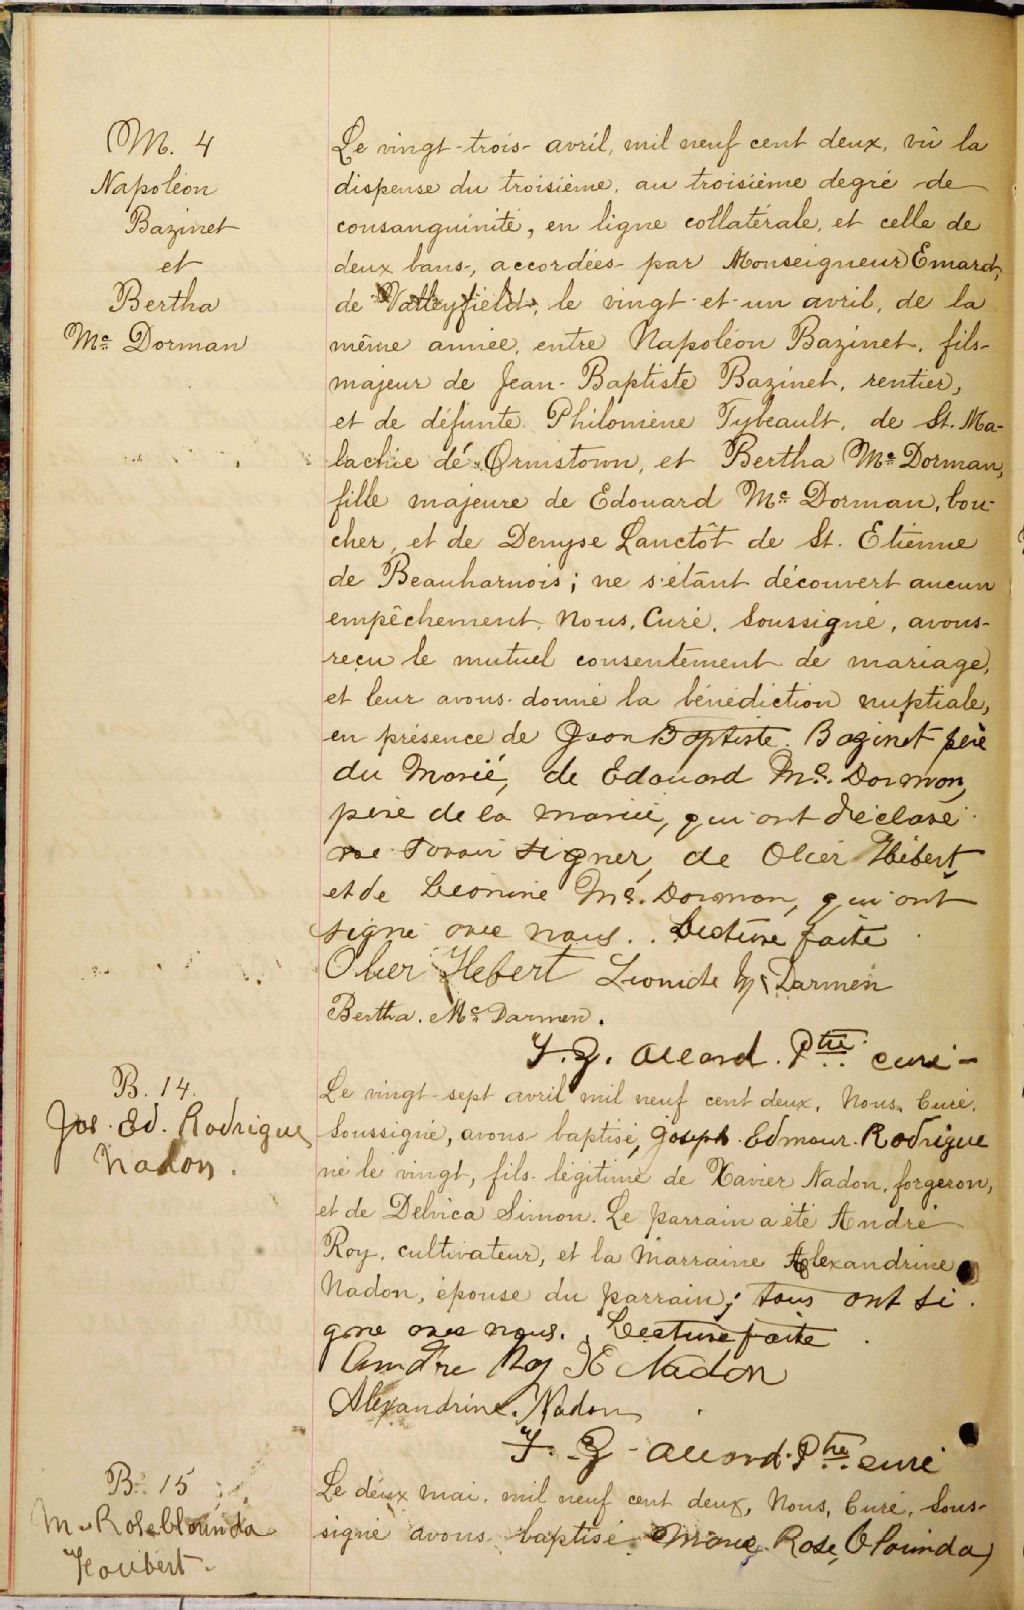 M. 4
Napoléon
Bazinet
et
Bertha
Mc Dorman
Le vingt-trois avril, mil neuf cent deux, vû la
dispense du troisième, au troisième degré de
consanguinité, en ligne collatérale, et celle de
deux bans, accordées par Monseigneur Emard,
de Valleyfield, le vingt-et-un avril, de la
même année, entre Napoléon Bazinet, fils
majeur de Jean-Baptiste Bazinet, rentier,
et de défunte Philomène Tybeault, de St. Ma-
lachie de Ormstown, et Bertha Mc Dorman,
fille majeure de Edouard Mc Dorman, bou-
cher, et de Denyse Lanctôt de St. Etienne
de Beauharnois; ne s'étant découvert aucun
empêchement, Nous, Curé, soussigné, avons
reçu le mutuel consentement de mariage,
et leur avons donné la bénédiction nuptiale,
en présence de Jean Baptiste Bazinet père
du Marié, de Edouard Mc. Dorman,
père de la mariée, qui ont déclaré
ne savoir signer, de Olier Hébert
et de Léonine Mc. Dorman, qui ont
signé avec nous. Lecture faite
Olier Hebert Leonide Mc Darmen
Bertha. Mc Darmen.
Allard. Ptre curé
B. 14.
Jos. Ed. Rodrigue
Nadon.
Le vingt-sept avril mil neuf cent deux, Nous, Curé,
soussigné, avons baptisé, Joseph Edmour Rodrigue
né le vingt, fils légitime de Xavier Nadon, forgeron,
et de Delvica Simon. Le parrain a été André
Roy, cultivateur, et la Marraine Alexandrine
Nadon, épouse du parrain; tous ont si
gné avec nous. Lecture faite
André Roy X Nadon
Alexandrine. Nadon
Allard. Ptre. curé
B. 15
M. Rose blounda
Houbert.
Le deux mai, mil neuf cent deux, Nous, Curé, sous-
signé avons baptisé Marie Rose, Olounda